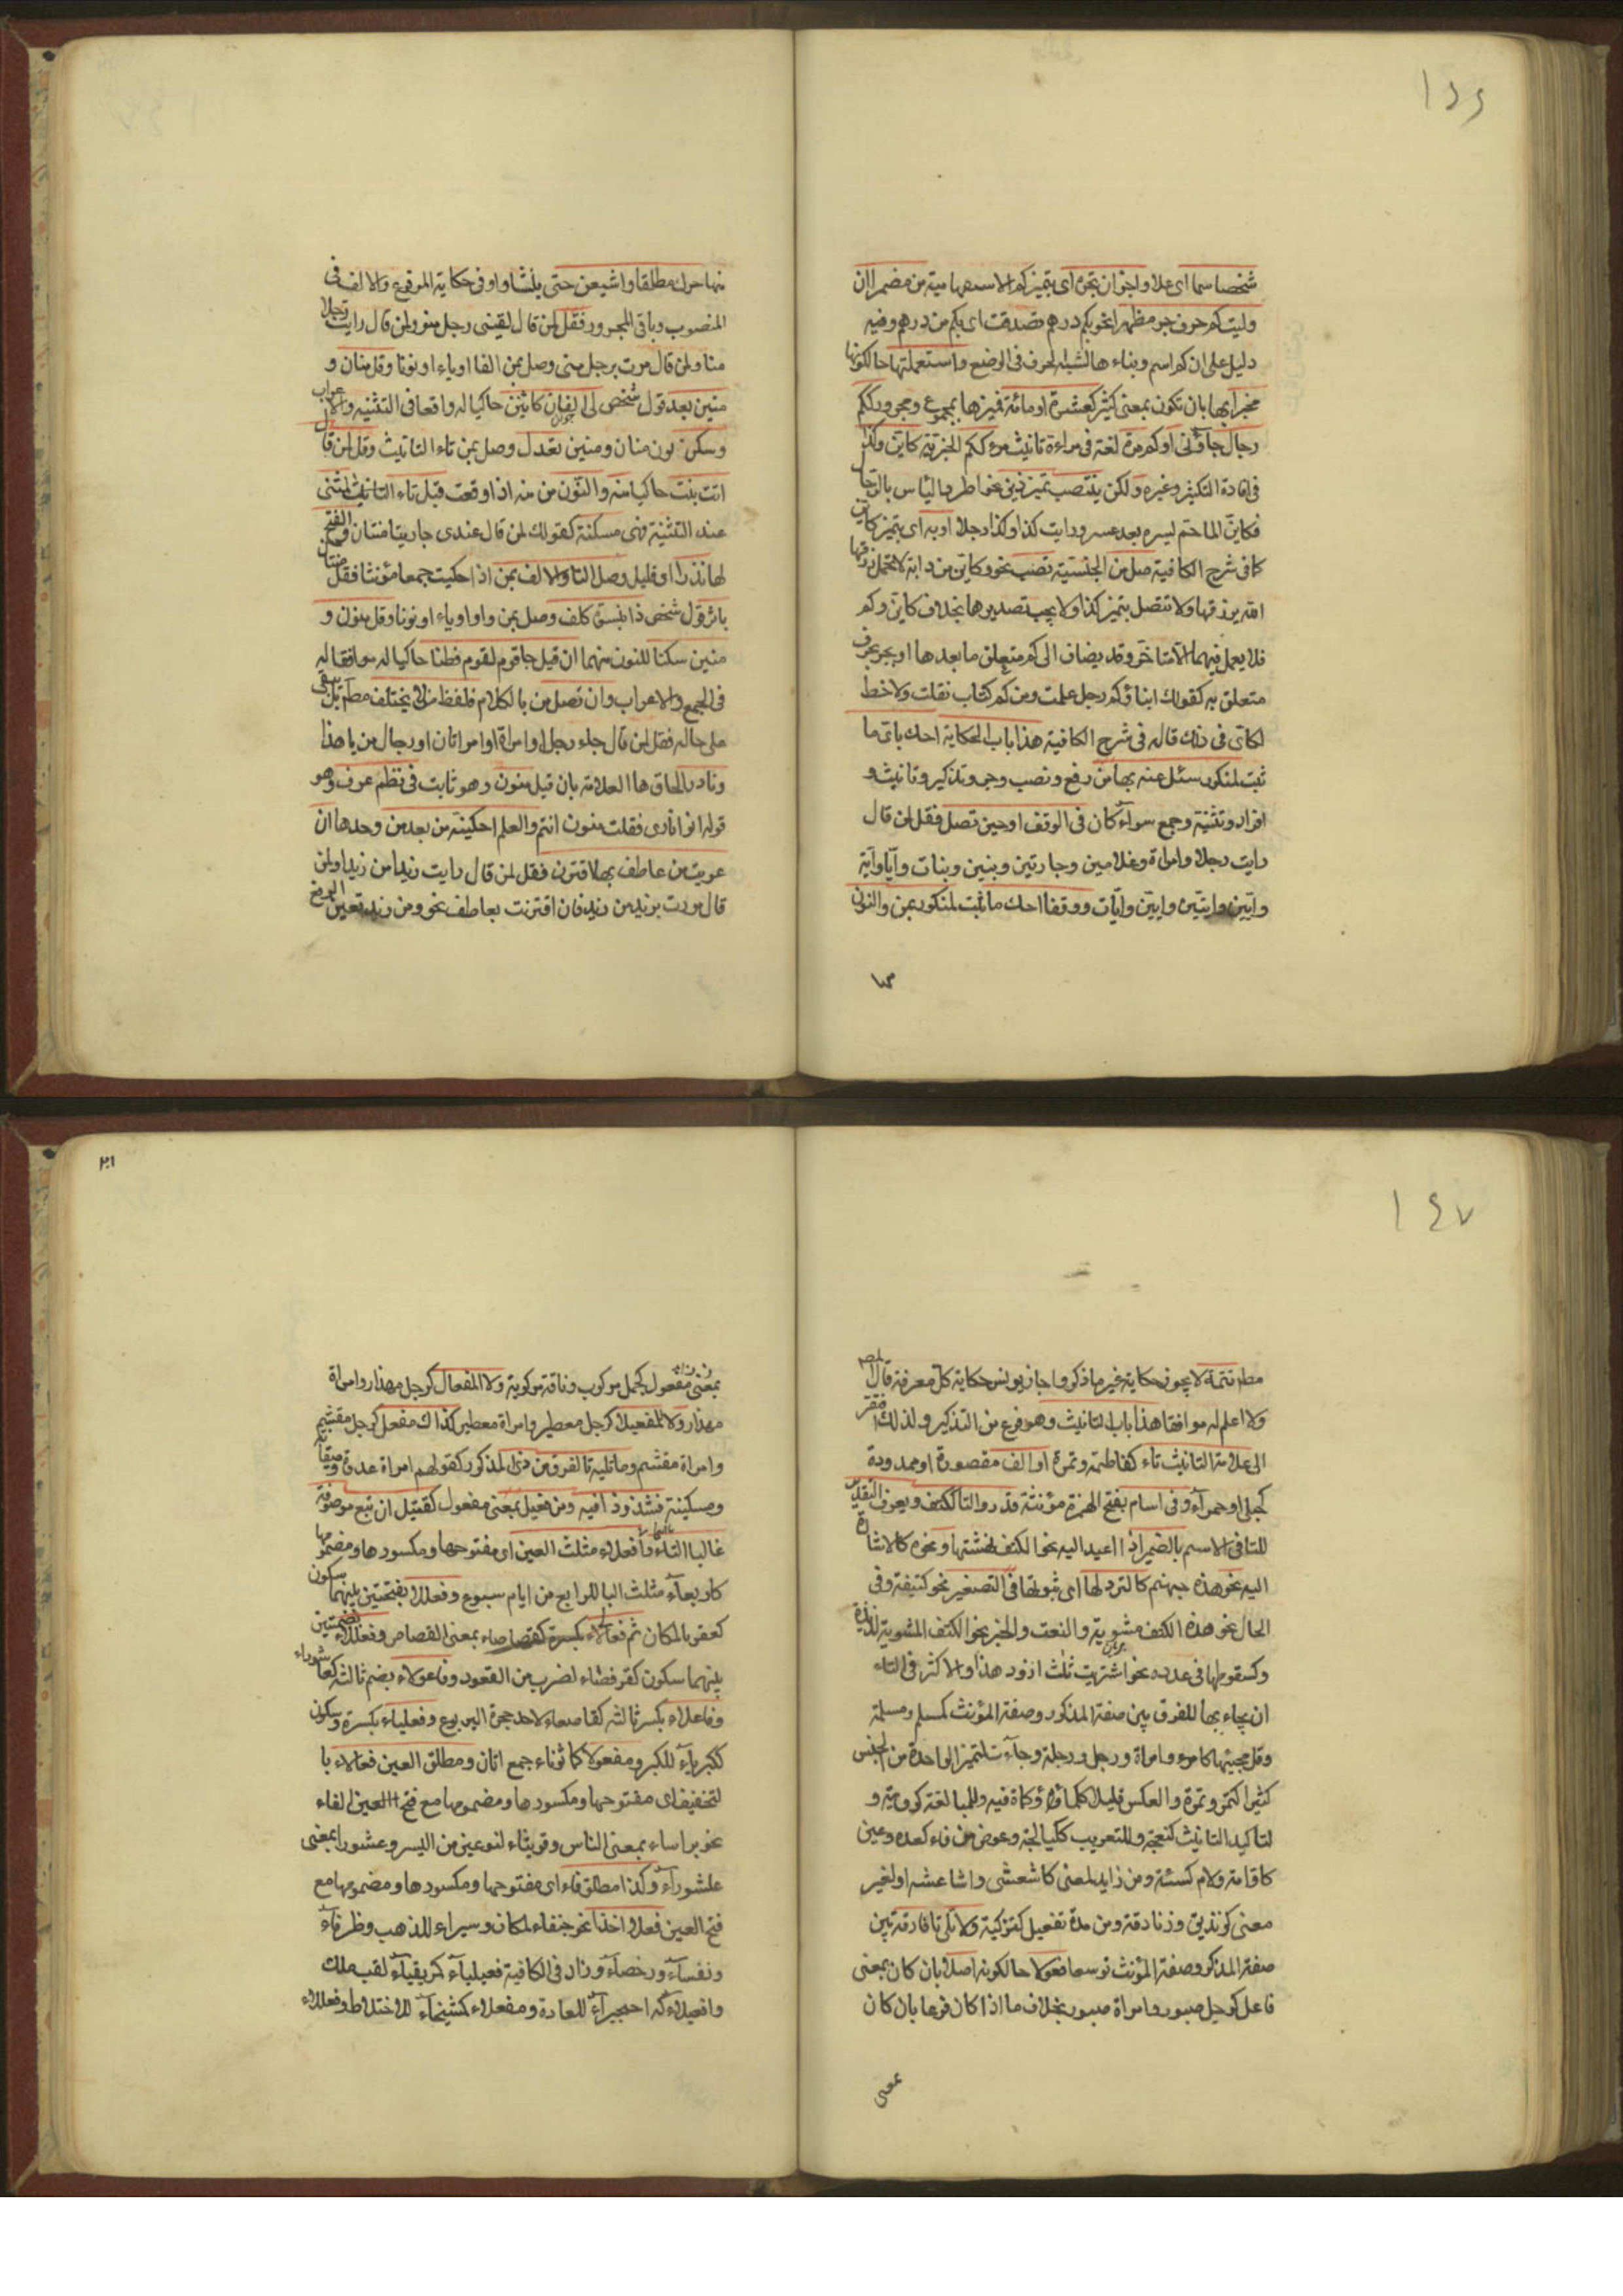 ١٤٦
شخصا سما اى علا واجز ان تجره اى تميزكم الاستفهامية من مضمرا ان
وليت كم حرف جر مظهرا نحو بكم درهم تصدقت اى بكم من درهم وفيه
دليل على ان كم اسم وبناءها لشبه الحرف فى الوضع واستعملنها حال كونها
مخبرا بها بان تكون بمعنى كثير كعشرة او مائة فميزها بمجموع ومجرور ككم
رجال جاؤنى او كم مرة لغة فى مراءة تانيث مرء ككم الخبرية كاين وكذا
فى افادة التكثير وغيره ولكن ينتصب تميز ذين نحو اطرد الياس بالرجا
فكاين الما حم يسره بعد عسر ورايت كذا وكذا رجلا او به اى بتميز كاين
كما فى شرح الكافية صل من الجنسية تصب نحو وكاين من دابة لا تحمل رزقها
الله يرزقها ولا تتصل بتميز كذا ولا يجب تصديرها بخلاف كاين وكم
فلا يعمل فيهما الا متاخر وقد يضاف الى كم متعلق ما بعدها او يجر بحرف
متعلق به كقولك ابناؤكم رجل علمت ومن كم كتاب نقلت ولا خط
لكاى فى ذلك قاله فى شرح الكافية هذا باب الحكاية احك باى ما
ثبت لمنكور سئل عنه بها من رفع ونصب وجر وتذكير وتانيث و
افراد وتثنية وجمع سوآء كان فى الوقف او حين تصل فقل لمن قال
رايت رجلا وامراة وغلامين وجارتين وبنين وبنات وايا واية
وايين وايتين وايين وايات ووقفا احك ما ثبت لمنكور بمن والنون
منها حرك مطلقا واشبعن حتى ينشا واو فى حكاية المرفوع والالف فى
المنصوب وباقى المجرور فقل لمن قال لقينى رجل منو ولمن قال رايت رجلا
منا ولمن قال مررت برجل منى وصل بمن الفا او ياء او نونا وقل منان و
منين بعد قول شخص لى الفان كائنين حاكيا له واقعا فى التثنية والاعراب
وسكن نون منان ومنين تعدل وصل بمن تاء التانيث وقل لمن قال
اتت بنت حاكيا منه والنون من منه اذا وقعت قبل تاء التانيث المثنى
عند التثنية فهى مسكنة كقولك لمن قال عندى جاريتا منتان والفتح
لها نذرا او قليل وصل التا والالف بمن اذا حكيت جمعا مؤنثا فقل منات
باثر قول شخص ذا بنسوة كلف وصل بمن واوا او ياء او نونا وقل منون و
منين سكنا للنون منهما ان قيل جا قوم لقوم فطنا حاكيا له موافقا له
فى الجمع والاعراب وان تصل من بالكلام فلفظ من لا يختلف مطم بل يبقى
على حاله فقل لمن قال جاء رجل او امراة او امراتان او رجال من يا هذا
ونادر الحاق ها العلامة بان قيل منون وهو ثابت فى نظم عرف وهو
قوله اتوا نارى فقلت منون انتم والعلم احكينه من بعد من وحدها ان
عريت من عاطف بها اقترن فقل لمن قال رايت زيدا من زيدا ولمن
قال مررت بزيد من زيد فان اقترنت بعاطف نحو ومن زيد تعين الرفع
١٤٧
مطم تتمة لا يجوز حكاية غير ما ذكر واجاز يونس حكاية كل معرفة قال المص
ولا اعلم له موافقا هذا باب التانيث وهو فرع من التذكير ولذلك افتقر
الى علامة التانيث تاء كفاطمة وتمرة او الف مقصورة او ممدودة
كحبلى او حمرآء وفى اسام بفتح الهمزة مؤنثة قدروا التا كالكتف ويعرف التقدير
للتا فى الاسم بالضمير اذا اعيد اليه نحو الكتف نهشتها ونحوه كالاشارة
اليه نحو هذه جهنم كالرد لها اى ثبوتها فى التصغير نحو كتيفة وفى
الحال نحو هذه الكتف مشوية والنعت والخبر نحو الكتف المشوية لذيذة
وكسقوطها فى عدده نحو اشتريت ثلث اذود هذا والاكثر فى التاء
ان يجاء بها للفرق بين صفة المذكر وصفة المؤنث كمسلم ومسلمة
وقل مجيئها كامرء وامراة ورجل ورجلة وجآءت لتميز الواحدة من الجنس
كثيرا كتمر وتمرة والعكس قليلا ككما وكماة فيه وللمبالغة كروية و
لتاكيد التانيث كنعجة وللتعريب ككيالجة وعوض من فاء كعدة وعين
كاقامة ولام كسنة ومن زايد لمعنى كاشعثى واشاعثة او لغير
معنى كزنديق وزنادقة ومن مدة تفعيل كتزكية ولا تلى تا فارقة بين
صفة المذكر وصفة المؤنث توسعا فعولا حال كونه اصلا بان كان بمعنى
فاعل كرجل صبور وامراة صبور بخلاف ما اذا كان فرعا بان كان
بمعنى
بمعنى مفعول كجمل مركوب وناقة مركوبة ولا المفعال كرجل مهذار وامراة
مهذار ولا المفعيل كرجل معطير وامراة معطير كذاك مفعل كرجل مغشم
وامراة مغشم وما تليه تا الفرق من ذى المذكور كقولهم امراة عدوة وميقانة
ومسكينة فشذوذ فيه ومن فعيل بمعنى مفعول كقتيل ان تبع موصوفه
غالبا التاء وافعلاء مثلث العين اى مفتوحها ومكسورها ومضمومها
كاربعآء مثلث البا للرابع من ايام سبوع وفعللا بفتحتين بينهما سكون
كعقربا لمكان ثم فعالاء بكسرة كقصاصاء بمعنى القصاص وفعللاء بضمتين
بينهما سكون كقرفصاء لضرب من القعود وفاعولاء بضم ثالثه كعاشوراء
وفاعلاء بكسر ثالثه كقاصعاء لاحد جحرة اليربوع وفعلياء بكسرة وسكون
ككبرياء للكبر ومفعولا كماتوناء جمع اتان ومطلق العين فعالاء با
لتخفيف اى مفتوحها ومكسورها ومضمومها مع فتح العين الفاء
نحو براساء بمعنى الناس وقريثاء لنوعين من البسر وعشورا بمعنى
عاشورآء وكذا مطلق فاء اى مفتوحها ومكسورها ومضمومها مع
فتح العين فعلاء اخذا نحو جنفاء لمكان وسيراء للذهب وظرفآء
ونفسآء ورخصآء وزاد فى الكافية فعيليآء كمزيقيآء لقب ملك
وافعيلاء كه اهجيرآء للعادة ومفعلاء كمشيخآء للاختلاط وفعللاء